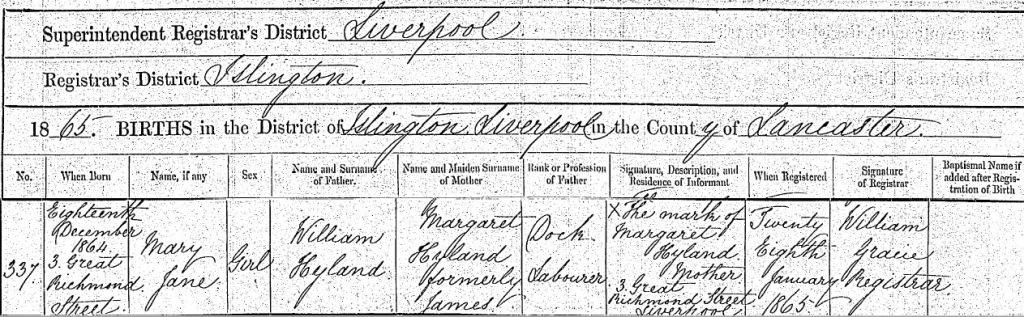 Superintendent Registrar's District Liverpool
Registrar's District Islington.
1865. BIRTHS in the District of Islington Liverpool in the County of Lancaster.
No. When Born Name, if any Sex Name and Surname of Father. Name and Maiden Surname of Mother Rank or Profession of Father Signature, Description, and Residence of Informant When Registered Signature of Registrar Baptismal Name if added after Registration of Birth
337.
Eighteenth
December
1864.
3. Great
Richmond
Street.
Mary
Jane
Girl
William
Hyland.
Margaret
Hyland
formerly
James
Dock
Labourer
X The mark of
Margaret
Hyland
Mother
3. Great
Richmond Street
Liverpool
Twenty
Eighth
January
1865.
William
Gracie
Registrar